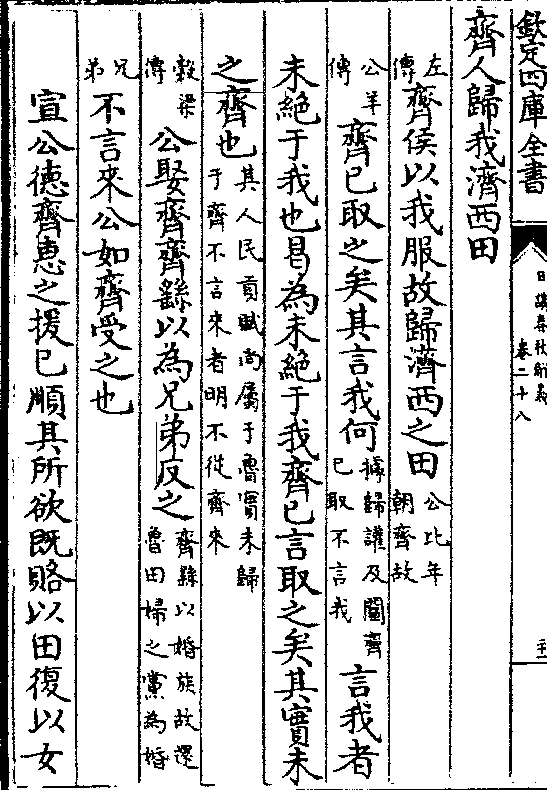 欽定四庫全書
日講春秋解義
卷二十八
齊人歸我濟西田
左傳齊侯以我服故歸濟西之田公比年朝齊故
公羊傳齊已取之矣其言我何據歸讙及闡齊已取不言我言我者
未絕于我也曷為未絕于我齊已言取之矣其實未
之齊也其人民貢賦尚屬于魯實未歸于齊不言來者明不從齊來
穀梁傳公娶齊齊繇以為兄弟反之齊繇以婚族故還魯田婦之黨為婚
兄弟不言來公如齊受之也
宣公德齊惠之援已順其所欲既賂以田復以女